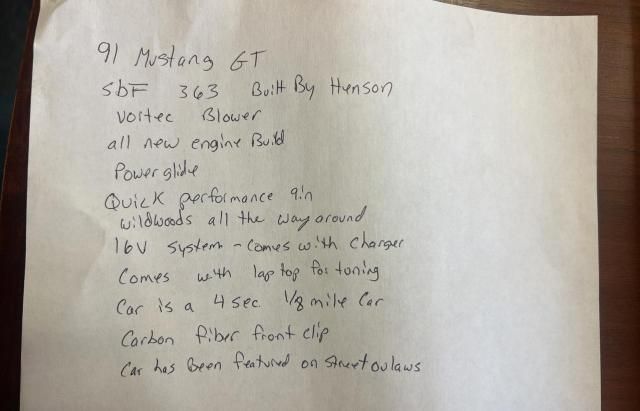 91 Mustang GT
SbF 363 Built By Henson
Vortec Blower
all new engine Build
Powerglide
Quick performance 9in
wildwoods all the way around
16V System - Comes with Charger
Comes with laptop for tuning
Car is a 4 sec. 1/8 mile Car
Carbon fiber front clip
Car has Been featured on Street outlaws